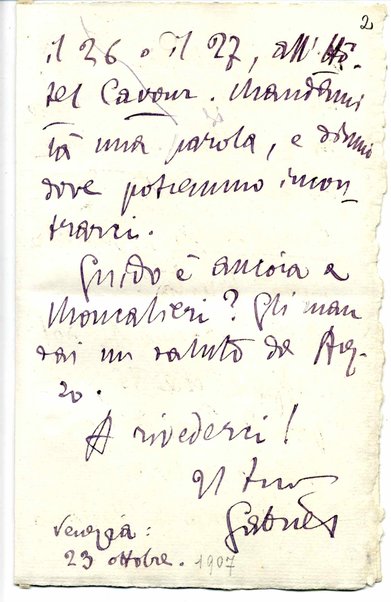 2
il 26 o il 27, all'Hô-
tel Cavour. Mandami
là una parola, e dimmi
dove potremmo incon-
trarci.
Guido è ancora a
Moncalieri? Gli man-
dai un saluto da
A rivederci!
Il tuo
Gabriel
Venezia:
23 ottobre. 1907